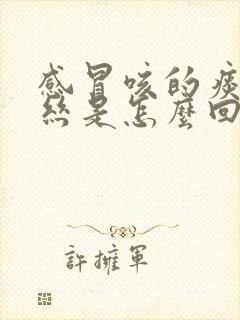 感冒咳的痰
丝是怎麼回
許擁軍